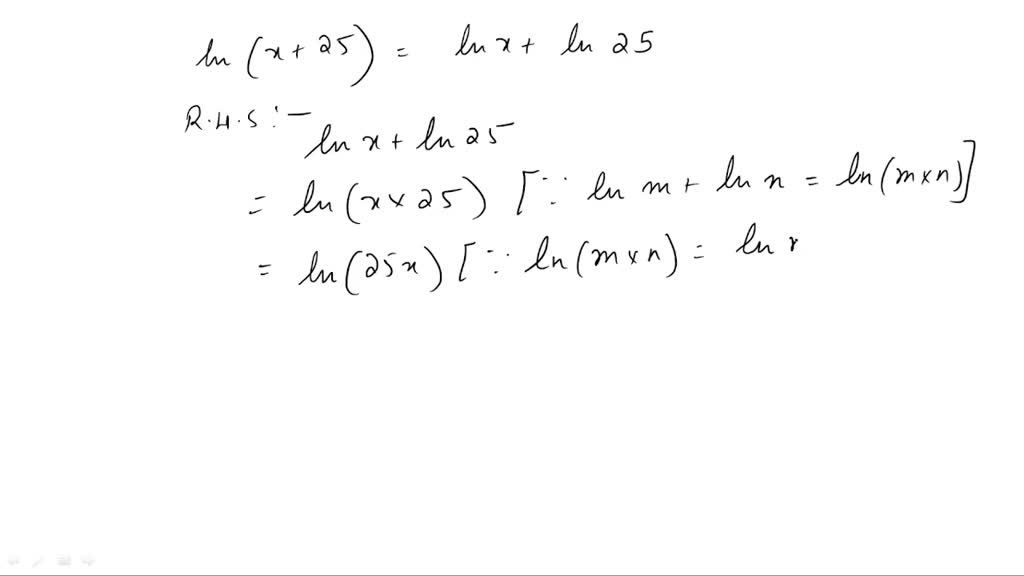 ln (x + 25) = ln x + ln 25
R.H.S :-
ln x + ln 25
= ln (x × 25) [∵ ln m + ln n = ln (m × n)]
= ln (25x) [∵ ln (m × n) = ln